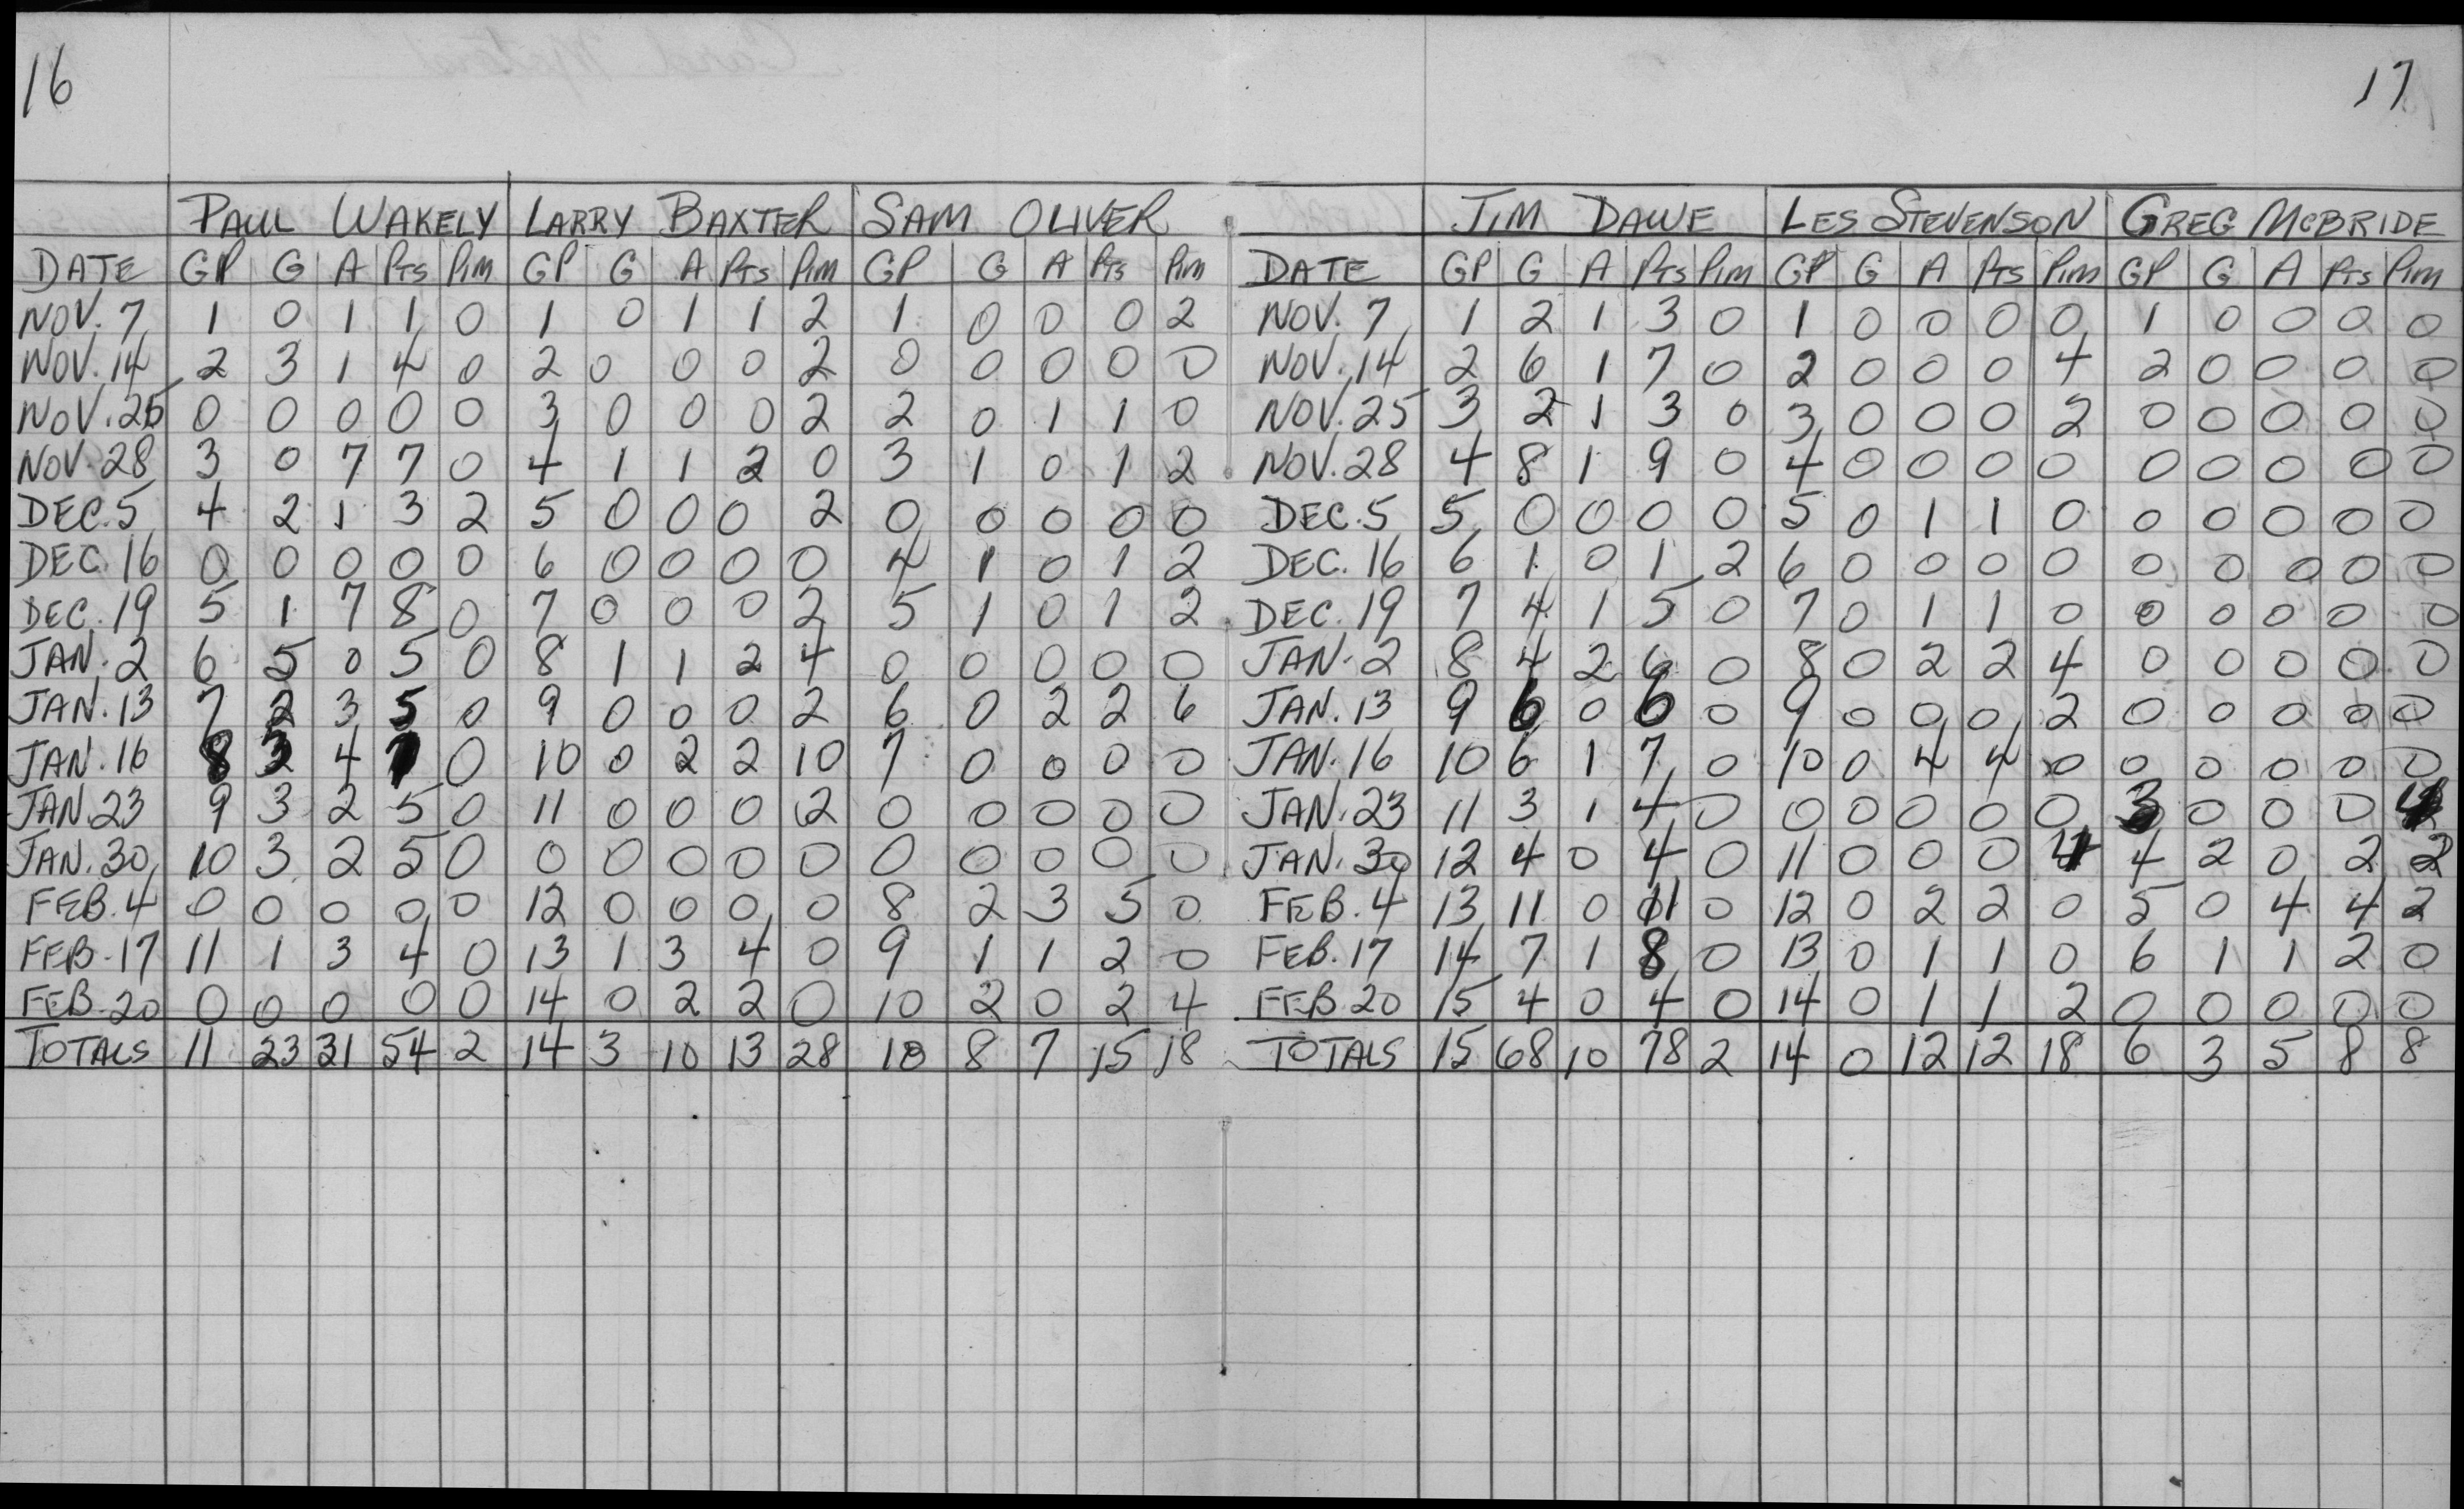 16
PAUL WAKELY LARRY BAXTER SAM OLIVER
DATE GP G A Pts Pim GP G A Pts Pim GP G A Pts Pim
NOV. 7 1 0 1 1 0 1 0 1 1 2 1 0 0 0 2
NOV. 14 2 3 1 4 0 2 0 0 0 2 0 0 0 0 0
NOV. 25 0 0 0 0 0 3 0 0 0 2 2 0 1 1 0
NOV. 28 3 0 7 7 0 4 1 1 2 0 3 1 0 1 2
DEC. 5 4 2 1 3 2 5 0 0 0 2 0 0 0 0 0
DEC. 16 0 0 0 0 0 6 0 0 0 0 4 1 0 1 2
DEC. 19 5 1 7 8 0 7 0 0 0 2 5 1 0 1 2
JAN. 2 6 5 0 5 0 8 1 1 2 4 0 0 0 0 0
JAN. 13 7 2 3 5 0 9 0 0 0 2 6 0 2 2 6
JAN. 16 8 3 4 7 0 10 0 2 2 10 7 0 0 0 0
JAN. 23 9 3 2 5 0 11 0 0 0 2 0 0 0 0 0
JAN. 30 10 3 2 5 0 0 0 0 0 0 0 0 0 0 0
FEB. 4 0 0 0 0 0 12 0 0 0 0 8 2 3 5 0
FEB. 17 11 1 3 4 0 13 1 3 4 0 9 1 1 2 0
FEB. 20 0 0 0 0 0 14 0 2 2 0 10 2 0 2 4
TOTALS 11 23 31 54 2 14 3 10 13 28 10 8 7 15 18
17
JIM DAWE LES STEVENSON GREG MCBRIDE
DATE GP G A Pts Pim GP G A Pts Pim GP G A Pts Pim
NOV. 7 1 2 1 3 0 1 0 0 0 0 1 0 0 0 0
NOV. 14 2 6 1 7 0 2 0 0 0 4 2 0 0 0 0
NOV. 25 3 2 1 3 0 3 0 0 0 2 0 0 0 0 0
NOV. 28 4 8 1 9 0 4 0 0 0 0 0 0 0 0 0
DEC. 5 5 0 0 0 0 5 0 1 1 0 0 0 0 0 0
DEC. 16 6 1 0 1 2 6 0 0 0 0 0 0 0 0 0
DEC. 19 7 4 1 5 0 7 0 1 1 0 0 0 0 0 0
JAN. 2 8 4 2 6 0 8 0 2 2 4 0 0 0 0 0
JAN. 13 9 6 0 6 0 9 0 0 0 2 0 0 0 0 0
JAN. 16 10 6 1 7 0 10 0 4 4 0 0 0 0 0 0
JAN. 23 11 3 1 4 0 0 0 0 0 0 3 0 0 0 4
JAN. 30 12 4 0 4 0 11 0 0 0 4 4 2 0 2 2
FEB. 4 13 11 0 11 0 12 0 2 2 0 5 0 4 4 2
FEB. 17 14 7 1 8 0 13 0 1 1 0 6 1 1 2 0
FEB. 20 15 4 0 4 0 14 0 1 1 2 0 0 0 0 0
TOTALS 15 68 10 78 2 14 0 12 12 18 6 3 5 8 8